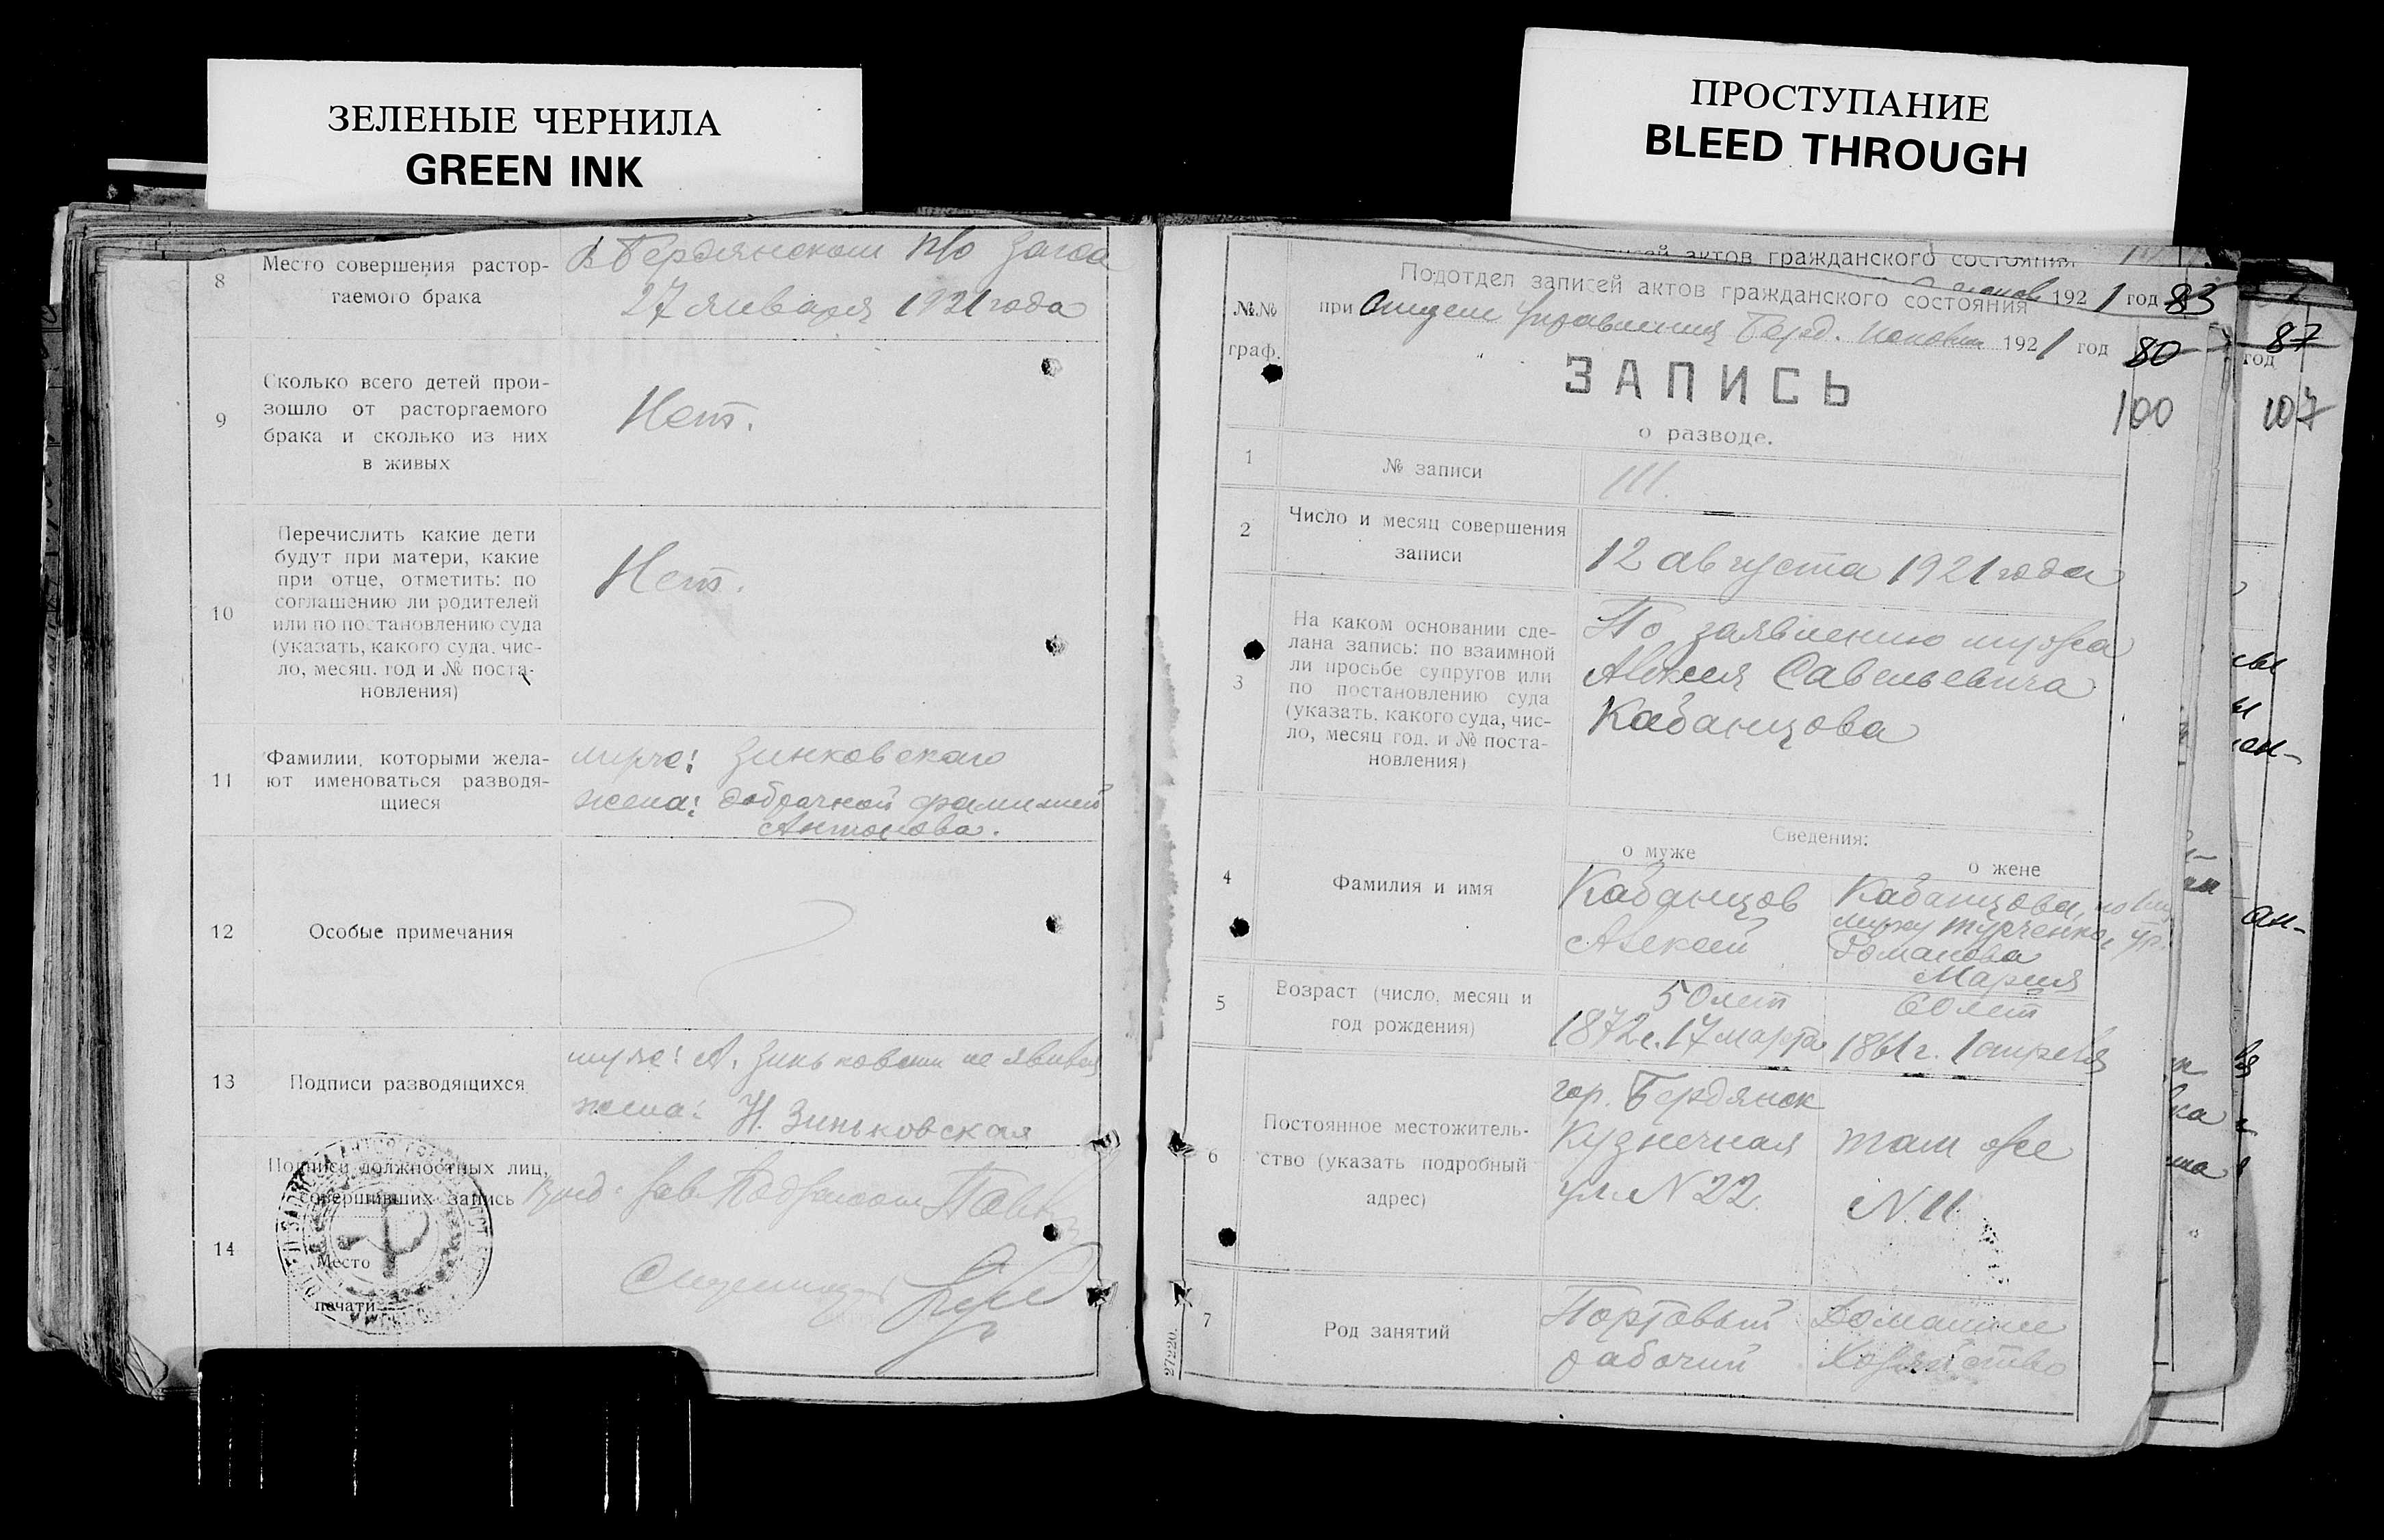 ЗЕЛЕНЫЕ ЧЕРНИЛА
GREEN INK
ПРОСТУПАНИЕ
BLEED THROUGH
8
Место совершения растор-
гаемого брака
В Бердянском п/о Загса
27 января 1921 года
9
Сколько всего детей прои-
зошло от расторгаемого
брака и сколько из них
в живых
Нет.
10
Перечислить какие дети
будут при матери, какие
при отце, отметить: по
соглашению ли родителей
или по постановлению суда
(указать, какого суда, чис-
ло, месяц, год и № поста-
новления)
Нет.
11
Фамилии, которыми жела-
ют именоваться разводя-
щиеся
муж: Зинковского
жена: добрачной фамилией
Антонова.
12
Особые примечания
13
Подписи разводящихся
муж: А. Зиньковский не явився
жена: Н. Зиньковская
14
Подписи должностных лиц,
совершивших запись
Место
печати
актов гражданского состояния
1921 год 83
Подотдел записей актов гражданского состояния
при Отделе Управления Берд. 1921 год 80
87
год
100
107
№№
граф.
ЗАПИСЬ
о разводе.
1
№ записи
111.
2
Число и месяц совершения
записи
12 августа 1921 года
3
На каком основании сде-
лана запись: по взаимной
ли просьбе супругов или
по постановлению суда
(указать, какого суда, чис-
ло, месяц год, и № поста-
новления)
По заявлению мужа
Алексея Савельевича
Кабанцова
Сведения:
о муже
о жене
4
Фамилия и имя
Кабанцов
Алексей
Кабанцова, по
мужу Турченко, ур.
Романова
Мария
5
Возраст (число, месяц и
год рождения)
50 лет
1872 г. 17 марта
60 лет
1861 г. 1 апреля
6
Постоянное местожитель-
ство (указать подробный
адрес)
гор. Бердянск
Кузнечная
ул. N 22.
там же
N 11
7
Род занятий
Портовый
рабочий
Домашнее
хозяйство
27220.